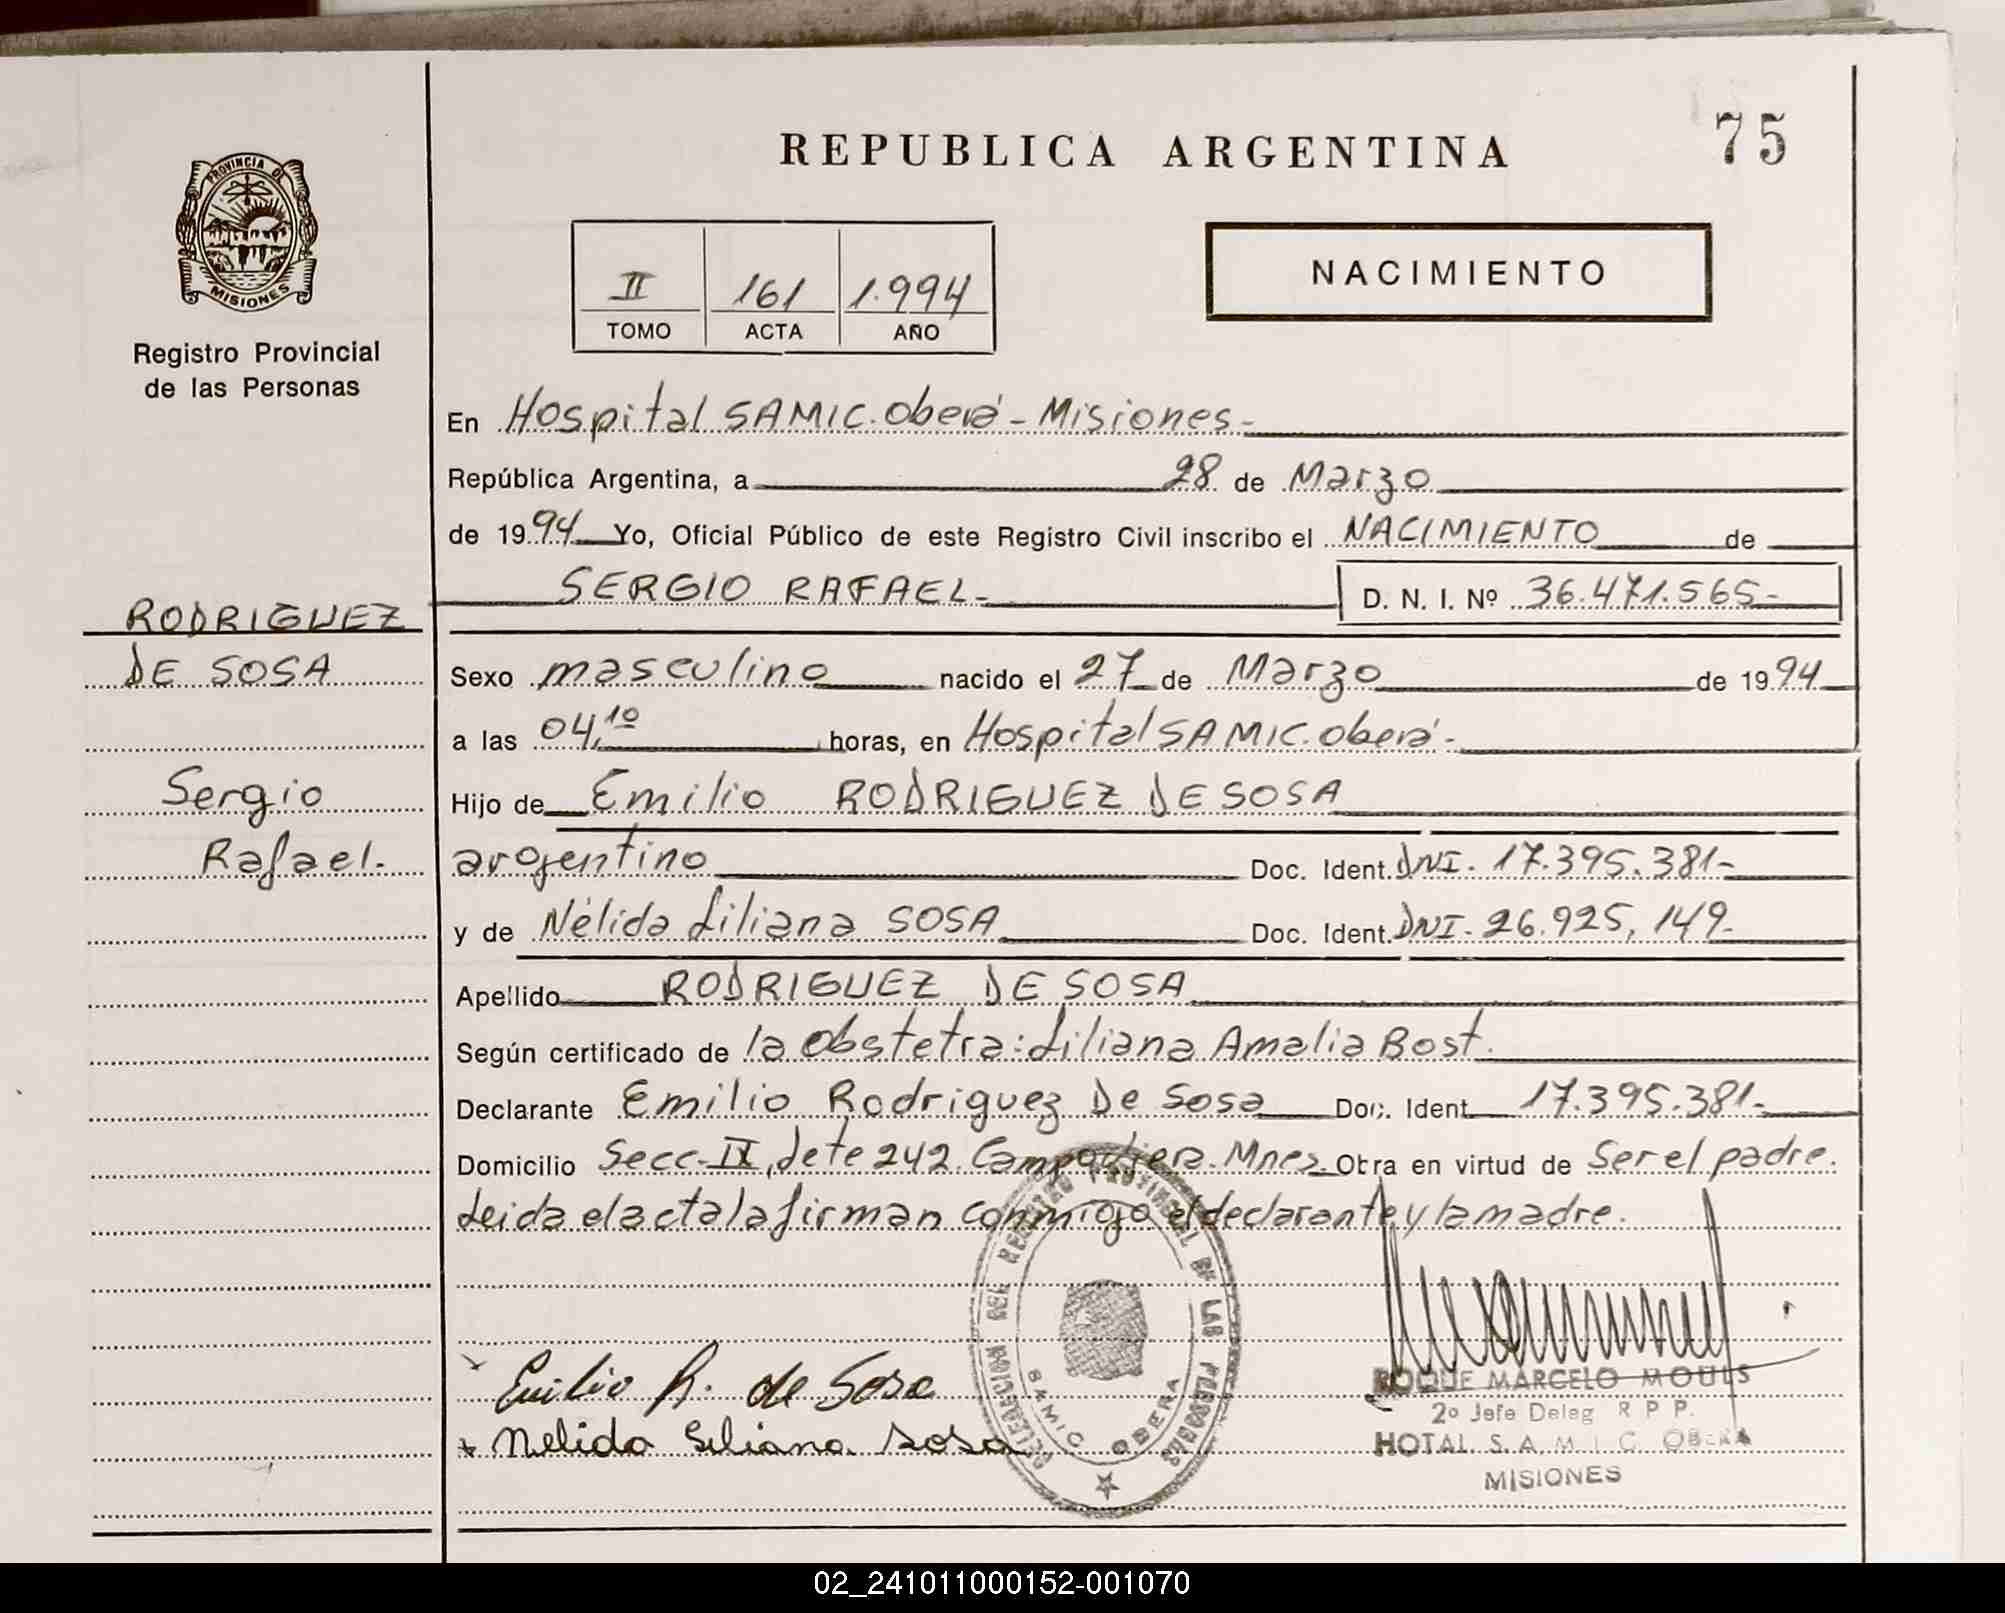 REPUBLICA ARGENTINA
75
PROVINCIA DE
MISIONES
Registro Provincial
de las Personas
II 161 1.994
TOMO ACTA AÑO
NACIMIENTO
En Hospital SAMIC. Oberá - Misiones -
República Argentina, a 28 de Marzo
de 1994 Yo, Oficial Público de este Registro Civil inscribo el NACIMIENTO de
SERGIO RAFAEL - D. N. I. Nº 36.471.565 -
RODRIGUEZ
DE SOSA
Sergio
Rafael.
Sexo masculino nacido el 27 de Marzo de 1994
a las 04,10 horas, en Hospital SAMIC. Oberá -
Hijo de Emilio RODRIGUEZ DE SOSA
argentino Doc. Ident. DNI. 17.395.381 -
y de Nélida Liliana SOSA Doc. Ident. DNI. 26.925,149 -
Apellido RODRIGUEZ DE SOSA
Según certificado de la Obstetra: Liliana Amalia Bost.
Declarante Emilio Rodriguez De Sosa Doc. Ident 17.395.381 -
Domicilio Secc. IX, Lote 242. Campo Viera. Mnes. Obra en virtud de Ser el padre.
Leida el acta la firman conmigo el declarante y la madre.
Emilio R. de Sosa
Nelida Liliana Sosa
DELEGACION DEL REGISTRO PROVINCIAL DE LAS PERSONAS
SAMIC OBERA
ROQUE MARCELO MOULS
2º Jefe Deleg R P P.
HOTAL. S. A. M. I. C. OBERA
MISIONES
02_241011000152-001070